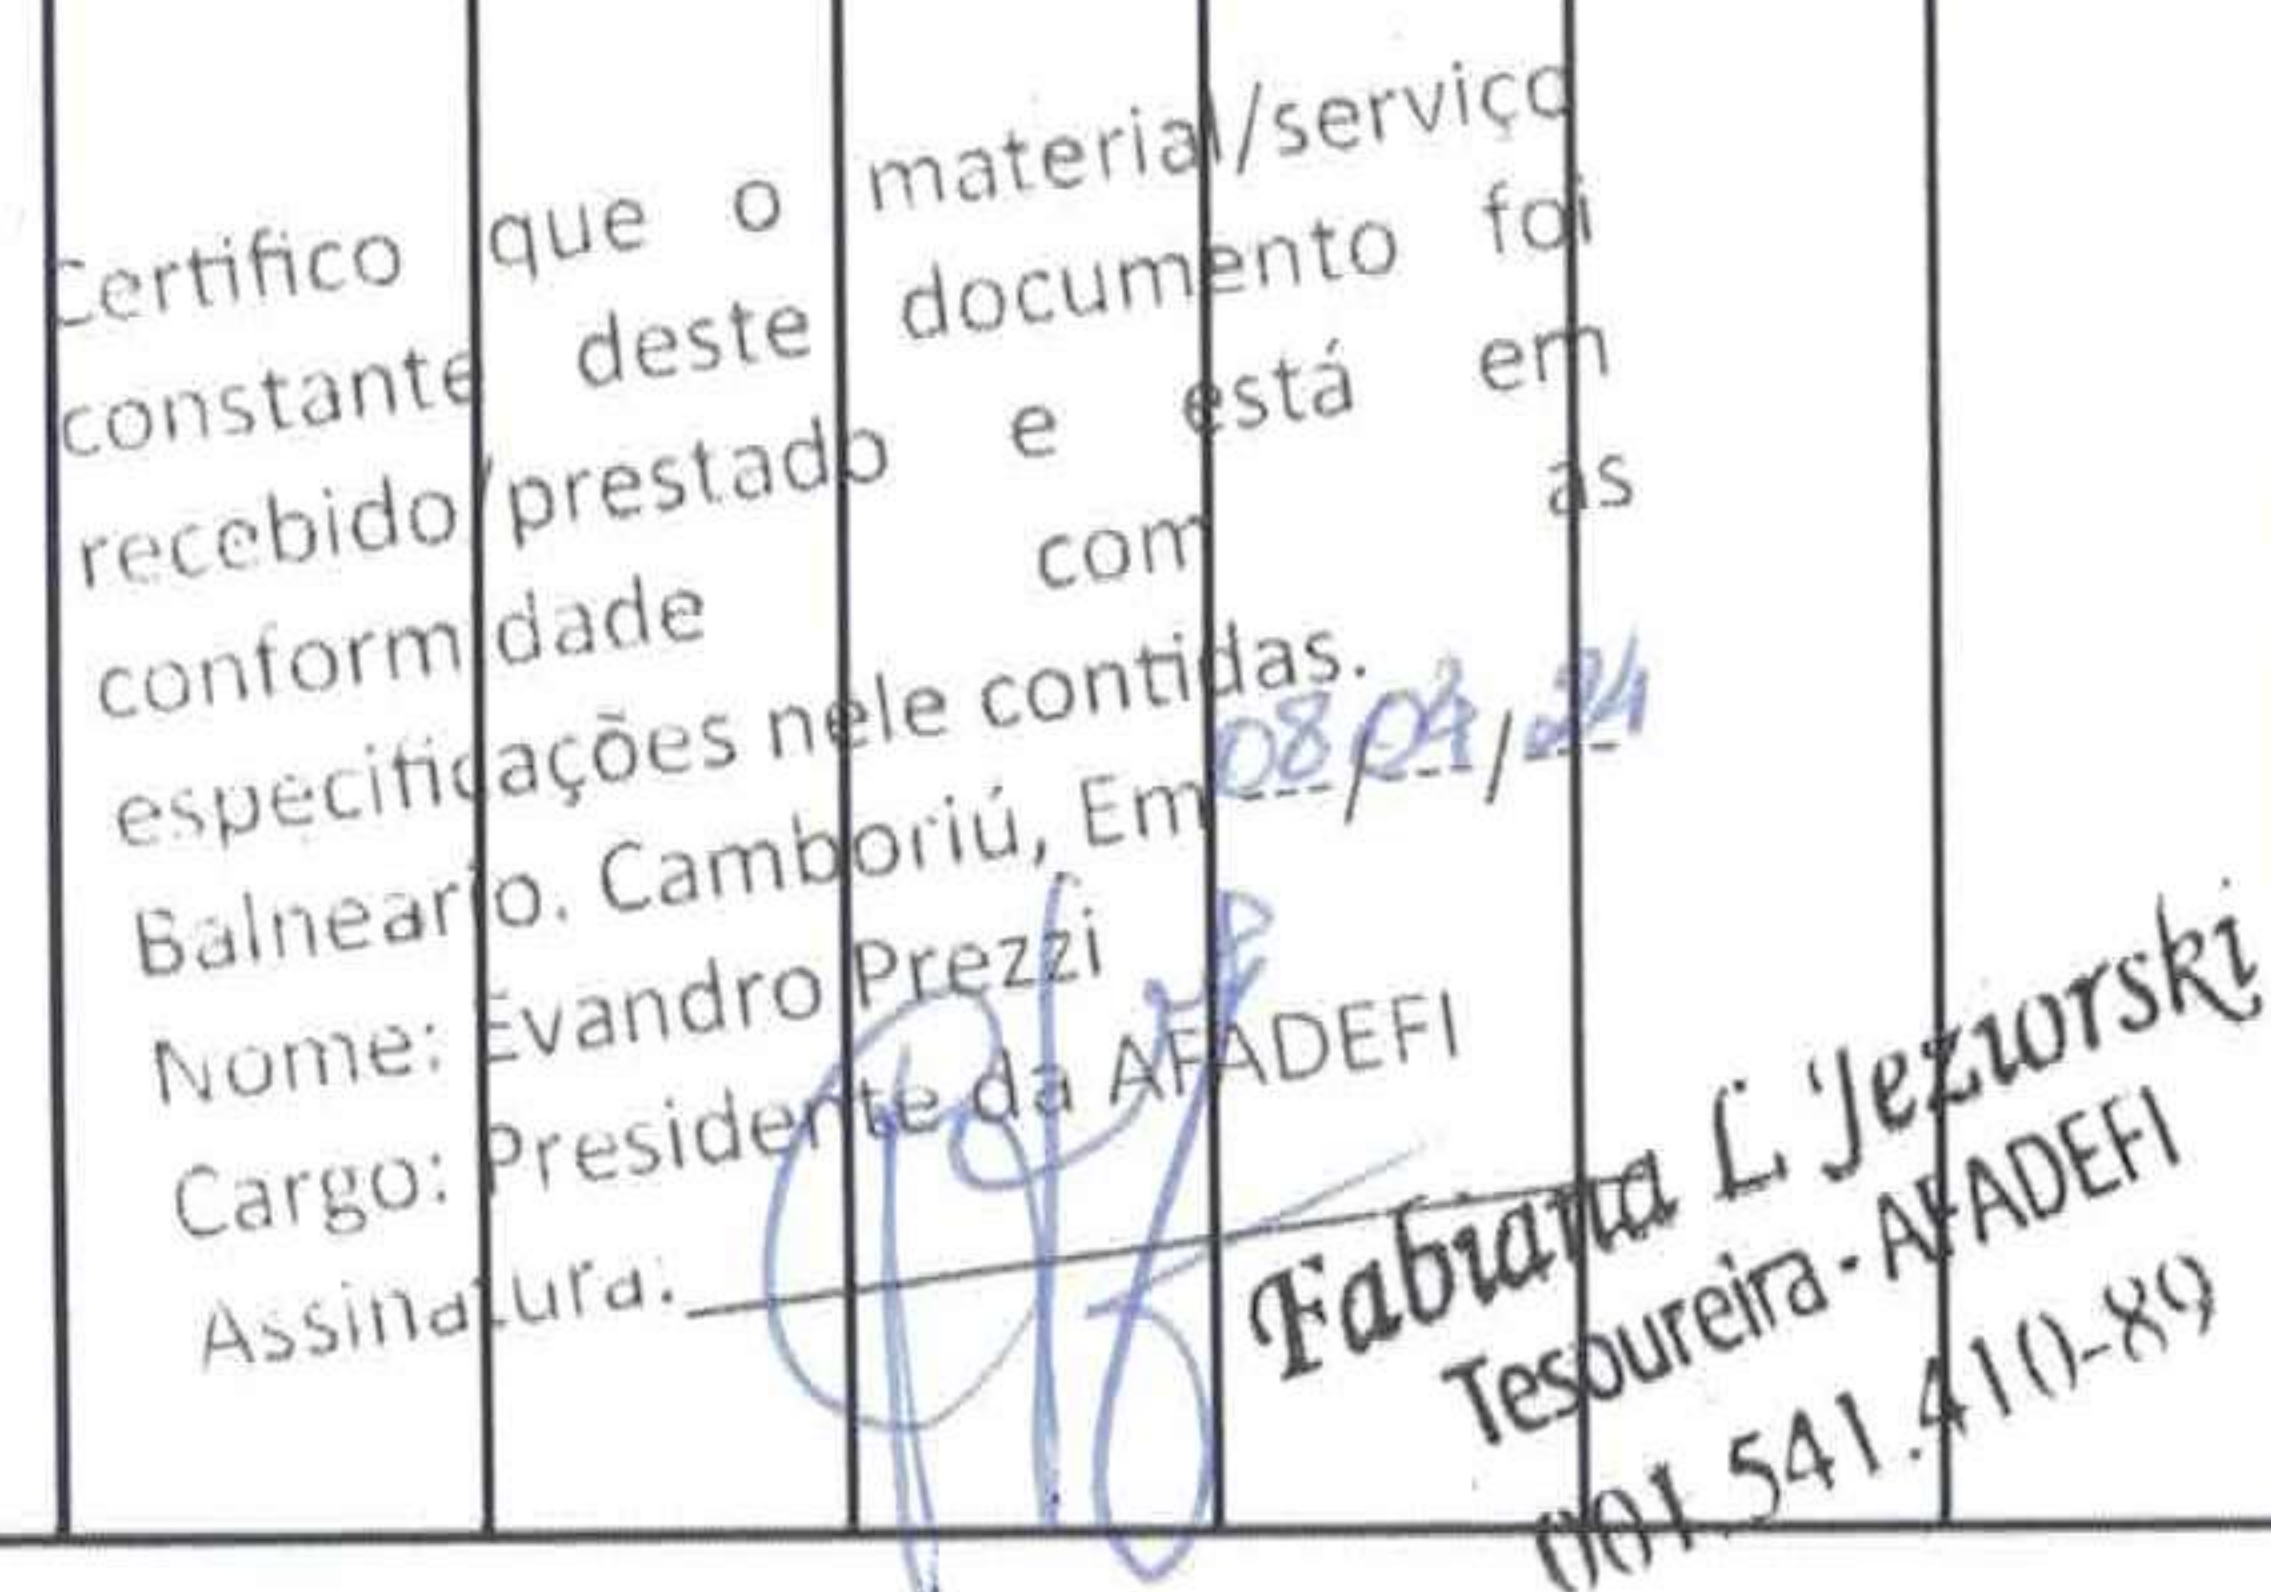 Certifico que o material/serviço
constante deste documento foi
recebido/prestado e está em
conformidade com as
especificações nele contidas.
Balneario. Camboriú, Em 08/04/24
Nome: Evandro Prezzi
Cargo: Presidente da AFADEFI
Assinatura:
Fabiana L Jeziorski
Tesoureira - AFADEFI
001.541.410-89